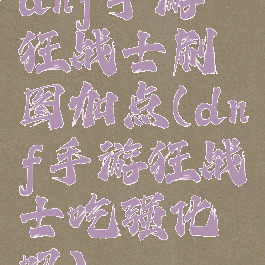 dnf手游
狂战士刷
图加点(dn
f手游狂战
士吃强化
吗)